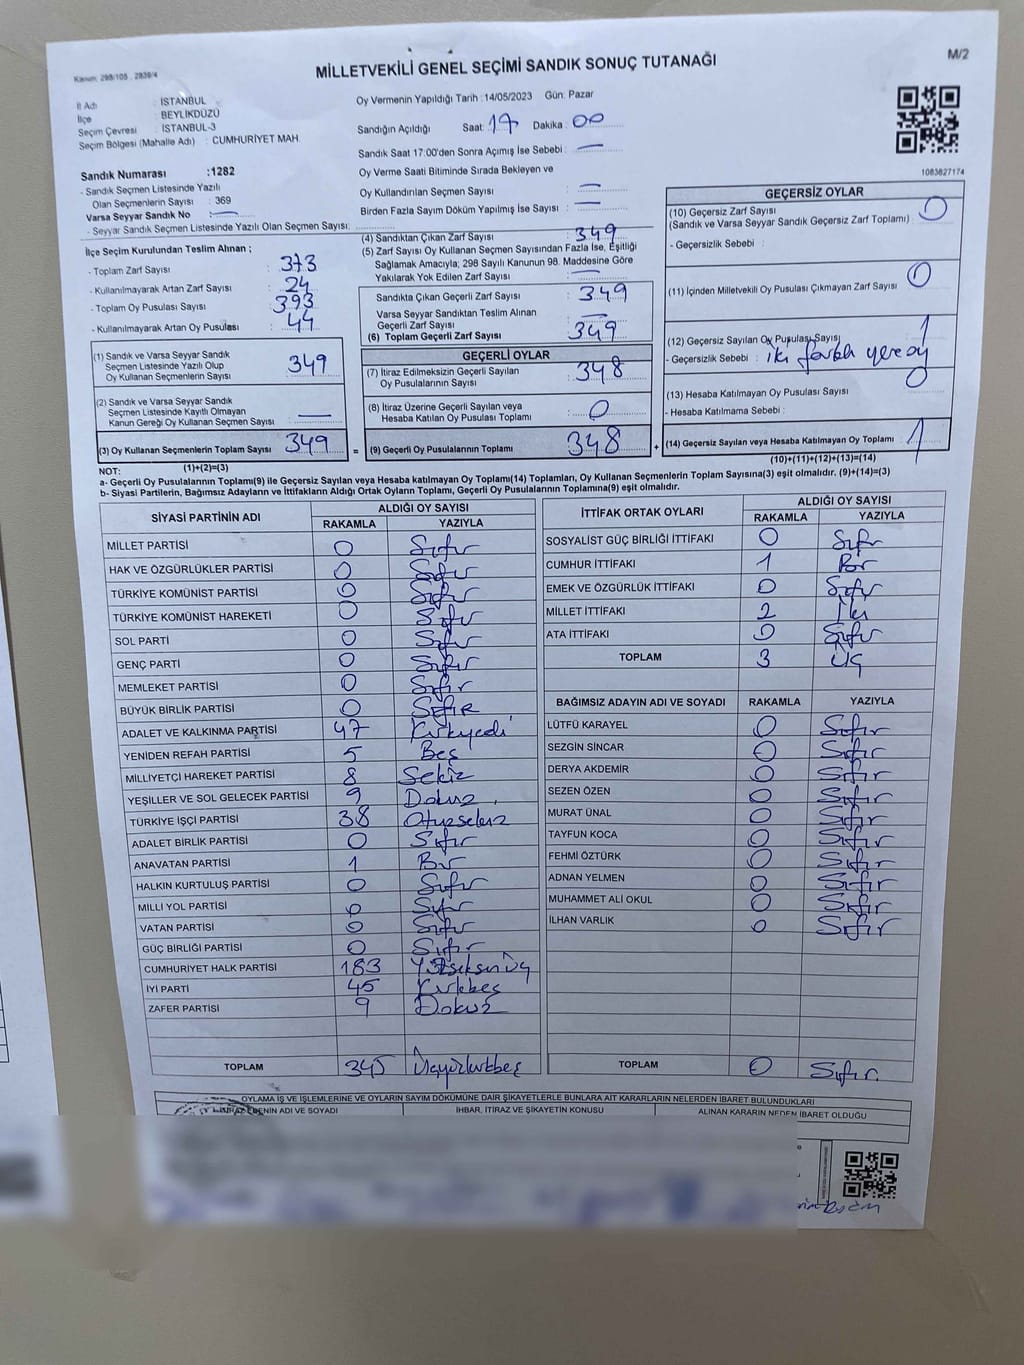 Kanun: 298/105 . 2839/4
MİLLETVEKİLİ GENEL SEÇİMİ SANDIK SONUÇ TUTANAĞI
M/2
İl Adı : İSTANBUL
İlçe : BEYLİKDÜZÜ
Seçim Çevresi : İSTANBUL-3
Seçim Bölgesi (Mahalle Adı) : CUMHURİYET MAH
Oy Vermenin Yapıldığı Tarih :14/05/2023 Gün: Pazar
Sandığın Açıldığı Saat: 17 Dakika : 00
Sandık Saat 17:00'den Sonra Açımış İse Sebebi : —
Oy Verme Saati Bitiminde Sırada Bekleyen ve
Oy Kullandırılan Seçmen Sayısı : —
Birden Fazla Sayım Döküm Yapılmış İse Sayısı : —
1083627174
Sandık Numarası :1282
- Sandık Seçmen Listesinde Yazılı
Olan Seçmenlerin Sayısı : 369
Varsa Seyyar Sandık No : —
- Seyyar Sandık Seçmen Listesinde Yazılı Olan Seçmen Sayısı:
İlçe Seçim Kurulundan Teslim Alınan ;
- Toplam Zarf Sayısı : 373
- Kullanılmayarak Artan Zarf Sayısı : 24
- Toplam Oy Pusulası Sayısı : 393
- Kullanılmayarak Artan Oy Pusulası : 44
(1) Sandık ve Varsa Seyyar Sandık
Seçmen Listesinde Yazılı Olup
Oy Kullanan Seçmenlerin Sayısı : 349
(2) Sandık ve Varsa Seyyar Sandık
Seçmen Listesinde Kayıtlı Olmayan
Kanun Gereği Oy Kullanan Seçmen Sayısı : —
(3) Oy Kullanan Seçmenlerin Toplam Sayısı : 349
(1)+(2)=(3)
(4) Sandıktan Çıkan Zarf Sayısı : 349
(5) Zarf Sayısı Oy Kullanan Seçmen Sayısından Fazla İse, Eşitliği
Sağlamak Amacıyla; 298 Sayılı Kanunun 98. Maddesine Göre
Yakılarak Yok Edilen Zarf Sayısı : —
Sandıkta Çıkan Geçerli Zarf Sayısı : 349
Varsa Seyyar Sandıktan Teslim Alınan
Geçerli Zarf Sayısı : —
(6) Toplam Geçerli Zarf Sayısı : 349
GEÇERLİ OYLAR
(7) İtiraz Edilmeksizin Geçerli Sayılan
Oy Pusulalarının Sayısı : 348
(8) İtiraz Üzerine Geçerli Sayılan veya
Hesaba Katılan Oy Pusulası Toplamı : 0
= (9) Geçerli Oy Pusulalarının Toplamı : 348 +
GEÇERSİZ OYLAR
(10) Geçersiz Zarf Sayısı
(Sandık ve Varsa Seyyar Sandık Geçersiz Zarf Toplamı) : 0
- Geçersizlik Sebebi :
(11) İçinden Milletvekili Oy Pusulası Çıkmayan Zarf Sayısı : 0
(12) Geçersiz Sayılan Oy Pusulası Sayısı : 1
- Geçersizlik Sebebi : iki farklı yere oy
(13) Hesaba Katılmayan Oy Pusulası Sayısı : 0
- Hesaba Katılmama Sebebi :
(14) Geçersiz Sayılan veya Hesaba Katılmayan Oy Toplamı : 1
(10)+(11)+(12)+(13)=(14)
NOT:
a- Geçerli Oy Pusulalarının Toplamı(9) ile Geçersiz Sayılan veya Hesaba katılmayan Oy Toplamı(14) Toplamları, Oy Kullanan Seçmenlerin Toplam Sayısına(3) eşit olmalıdır. (9)+(14)=(3)
b- Siyasi Partilerin, Bağımsız Adayların ve İttifakların Aldığı Ortak Oyların Toplamı, Geçerli Oy Pusulalarının Toplamına(9) eşit olmalıdır.
SİYASİ PARTİNİN ADI ALDIĞI OY SAYISI
RAKAMLA YAZIYLA
MİLLET PARTİSİ 0 Sıfır
HAK VE ÖZGÜRLÜKLER PARTİSİ 0 Sıfır
TÜRKİYE KOMÜNİST PARTİSİ 0 Sıfır
TÜRKİYE KOMÜNİST HAREKETİ 0 Sıfır
SOL PARTİ 0 Sıfır
GENÇ PARTİ 0 Sıfır
MEMLEKET PARTİSİ 0 Sıfır
BÜYÜK BİRLİK PARTİSİ 0 SIFIR
ADALET VE KALKINMA PARTİSİ 47 Kırkyedi
YENİDEN REFAH PARTİSİ 5 Beş
MİLLİYETÇİ HAREKET PARTİSİ 8 Sekiz
YEŞİLLER VE SOL GELECEK PARTİSİ 9 Dokuz
TÜRKİYE İŞÇİ PARTİSİ 38 Otuzsekiz
ADALET BİRLİK PARTİSİ 0 Sıfır
ANAVATAN PARTİSİ 1 Bir
HALKIN KURTULUŞ PARTİSİ 0 Sıfır
MİLLİ YOL PARTİSİ 0 Sıfır
VATAN PARTİSİ 0 Sıfır
GÜÇ BİRLİĞİ PARTİSİ 0 Sıfır
CUMHURİYET HALK PARTİSİ 183 Yüzseksenüç
İYİ PARTİ 45 Kırkbeş
ZAFER PARTİSİ 9 Dokuz
TOPLAM 345 Üçyüzkırkbeş
İTTİFAK ORTAK OYLARI ALDIĞI OY SAYISI
RAKAMLA YAZIYLA
SOSYALİST GÜÇ BİRLİĞİ İTTİFAKI 0 Sıfır
CUMHUR İTTİFAKI 1 Bir
EMEK VE ÖZGÜRLÜK İTTİFAKI 0 Sıfır
MİLLET İTTİFAKI 2 İki
ATA İTTİFAKI 0 Sıfır
TOPLAM 3 Üç
BAĞIMSIZ ADAYIN ADI VE SOYADI RAKAMLA YAZIYLA
LÜTFÜ KARAYEL 0 Sıfır
SEZGİN SİNCAR 0 Sıfır
DERYA AKDEMİR 0 Sıfır
SEZEN ÖZEN 0 Sıfır
MURAT ÜNAL 0 Sıfır
TAYFUN KOCA 0 Sıfır
FEHMİ ÖZTÜRK 0 Sıfır
ADNAN YELMEN 0 Sıfır
MUHAMMET ALİ OKUL 0 Sıfır
İLHAN VARLIK 0 Sıfır
TOPLAM 0 Sıfır.
OYLAMA İŞ VE İŞLEMLERİNE VE OYLARIN SAYIM DÖKÜMÜNE DAİR ŞİKAYETLERLE BUNLARA AİT KARARLARIN NELERDEN İBARET BULUNDUKLARI
EDENİN ADI VE SOYADI İHBAR, İTİRAZ VE ŞİKAYETİN KONUSU ALINAN KARARIN NEDEN İBARET OLDUĞU